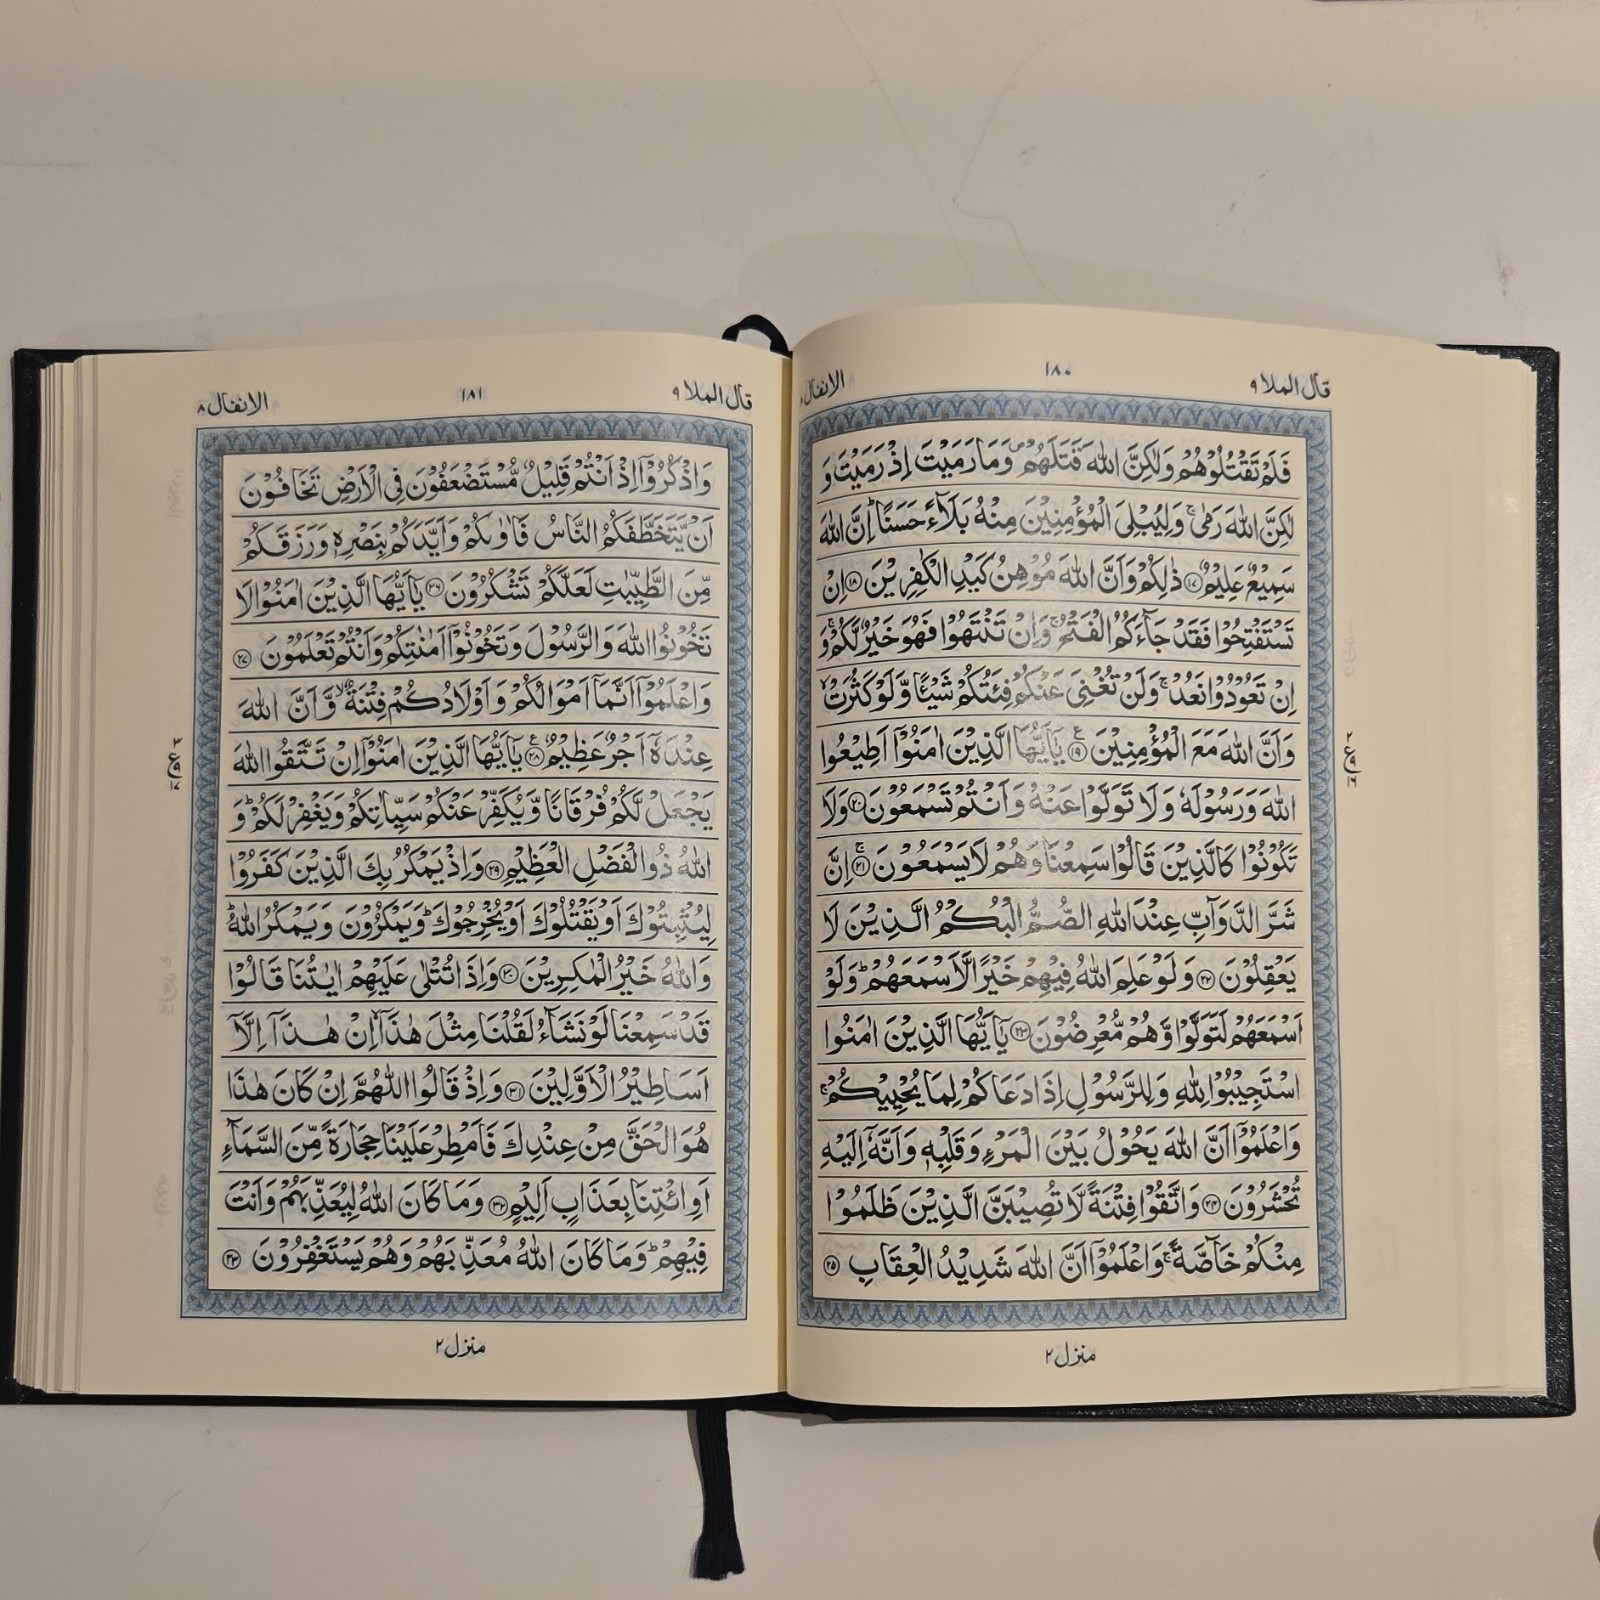 قال الملا ٩
١٨٠
الانفال ٨
فَلَمْ تَقْتُلُوْهُمْ وَلٰكِنَّ اللّٰهَ قَتَلَهُمْ ۪ وَمَا رَمَيْتَ اِذْ رَمَيْتَ وَ
لٰكِنَّ اللّٰهَ رَمٰى ۚ وَلِيُبْلِيَ الْمُؤْمِنِيْنَ مِنْهُ بَلَآءً حَسَنًا ؕ اِنَّ اللّٰهَ
سَمِيْعٌ عَلِيْمٌ ۝۱۷ ذٰلِكُمْ وَاَنَّ اللّٰهَ مُوْهِنُ كَيْدِ الْكٰفِرِيْنَ ۝۱۸ اِنْ
تَسْتَفْتِحُوْا فَقَدْ جَآءَكُمُ الْفَتْحُ ۚ وَاِنْ تَنْتَهُوْا فَهُوَ خَيْرٌ لَّكُمْ ۚ وَ
اِنْ تَعُوْدُوْا نَعُدْ ۚ وَلَنْ تُغْنِيَ عَنْكُمْ فِئَتُكُمْ شَيْـًٔا وَّلَوْ كَثُرَتْ ۙ
وَاَنَّ اللّٰهَ مَعَ الْمُؤْمِنِيْنَ ۝۱۹ يٰۤاَيُّهَا الَّذِيْنَ اٰمَنُوْۤا اَطِيْعُوا
اللّٰهَ وَرَسُوْلَهٗ وَلَا تَوَلَّوْا عَنْهُ وَاَنْتُمْ تَسْمَعُوْنَ ۝۲۰ وَلَا
تَكُوْنُوْا كَالَّذِيْنَ قَالُوْا سَمِعْنَا وَهُمْ لَا يَسْمَعُوْنَ ۝۲۱ اِنَّ
شَرَّ الدَّوَآبِّ عِنْدَ اللّٰهِ الصُّمُّ الْبُكْمُ الَّذِيْنَ لَا
يَعْقِلُوْنَ ۝۲۲ وَلَوْ عَلِمَ اللّٰهُ فِيْهِمْ خَيْرًا لَّاَسْمَعَهُمْ ؕ وَلَوْ
اَسْمَعَهُمْ لَتَوَلَّوْا وَّهُمْ مُّعْرِضُوْنَ ۝۲۳ يٰۤاَيُّهَا الَّذِيْنَ اٰمَنُوا
اسْتَجِيْبُوْا لِلّٰهِ وَلِلرَّسُوْلِ اِذَا دَعَاكُمْ لِمَا يُحْيِيْكُمْ ۚ
وَاعْلَمُوْۤا اَنَّ اللّٰهَ يَحُوْلُ بَيْنَ الْمَرْءِ وَقَلْبِهٖ وَاَنَّهٗۤ اِلَيْهِ
تُحْشَرُوْنَ ۝۲۴ وَاتَّقُوْا فِتْنَةً لَّا تُصِيْبَنَّ الَّذِيْنَ ظَلَمُوْا
مِنْكُمْ خَآصَّةً ۚ وَاعْلَمُوْۤا اَنَّ اللّٰهَ شَدِيْدُ الْعِقَابِ ۝۲۵
منزل ٢
قال الملا ٩
١٨١
الانفال ٨
وَاذْكُرُوْۤا اِذْ اَنْتُمْ قَلِيْلٌ مُّسْتَضْعَفُوْنَ فِي الْاَرْضِ تَخَافُوْنَ
اَنْ يَّتَخَطَّفَكُمُ النَّاسُ فَاٰوٰىكُمْ وَاَيَّدَكُمْ بِنَصْرِهٖ وَرَزَقَكُمْ
مِّنَ الطَّيِّبٰتِ لَعَلَّكُمْ تَشْكُرُوْنَ ۝۲۶ يٰۤاَيُّهَا الَّذِيْنَ اٰمَنُوْا لَا
تَخُوْنُوا اللّٰهَ وَالرَّسُوْلَ وَتَخُوْنُوْۤا اَمٰنٰتِكُمْ وَاَنْتُمْ تَعْلَمُوْنَ ۝۲۷
وَاعْلَمُوْۤا اَنَّمَاۤ اَمْوَالُكُمْ وَاَوْلَادُكُمْ فِتْنَةٌ ۙ وَّاَنَّ اللّٰهَ
عِنْدَهٗۤ اَجْرٌ عَظِيْمٌ ۝۲۸ يٰۤاَيُّهَا الَّذِيْنَ اٰمَنُوْۤا اِنْ تَتَّقُوا اللّٰهَ
يَجْعَلْ لَّكُمْ فُرْقَانًا وَّيُكَفِّرْ عَنْكُمْ سَيِّاٰتِكُمْ وَيَغْفِرْ لَكُمْ ؕ وَ
اللّٰهُ ذُو الْفَضْلِ الْعَظِيْمِ ۝۲۹ وَاِذْ يَمْكُرُ بِكَ الَّذِيْنَ كَفَرُوْا
لِيُثْبِتُوْكَ اَوْ يَقْتُلُوْكَ اَوْ يُخْرِجُوْكَ ؕ وَيَمْكُرُوْنَ وَيَمْكُرُ اللّٰهُ ؕ
وَاللّٰهُ خَيْرُ الْمٰكِرِيْنَ ۝۳۰ وَاِذَا تُتْلٰى عَلَيْهِمْ اٰيٰتُنَا قَالُوْا
قَدْ سَمِعْنَا لَوْ نَشَآءُ لَقُلْنَا مِثْلَ هٰذَاۤ ۙ اِنْ هٰذَاۤ اِلَّاۤ
اَسَاطِيْرُ الْاَوَّلِيْنَ ۝۳۱ وَاِذْ قَالُوا اللّٰهُمَّ اِنْ كَانَ هٰذَا
هُوَ الْحَقَّ مِنْ عِنْدِكَ فَاَمْطِرْ عَلَيْنَا حِجَارَةً مِّنَ السَّمَآءِ
اَوِ ائْتِنَا بِعَذَابٍ اَلِيْمٍ ۝۳۲ وَمَا كَانَ اللّٰهُ لِيُعَذِّبَهُمْ وَاَنْتَ
فِيْهِمْ ؕ وَمَا كَانَ اللّٰهُ مُعَذِّبَهُمْ وَهُمْ يَسْتَغْفِرُوْنَ ۝۳۳
منزل ٢